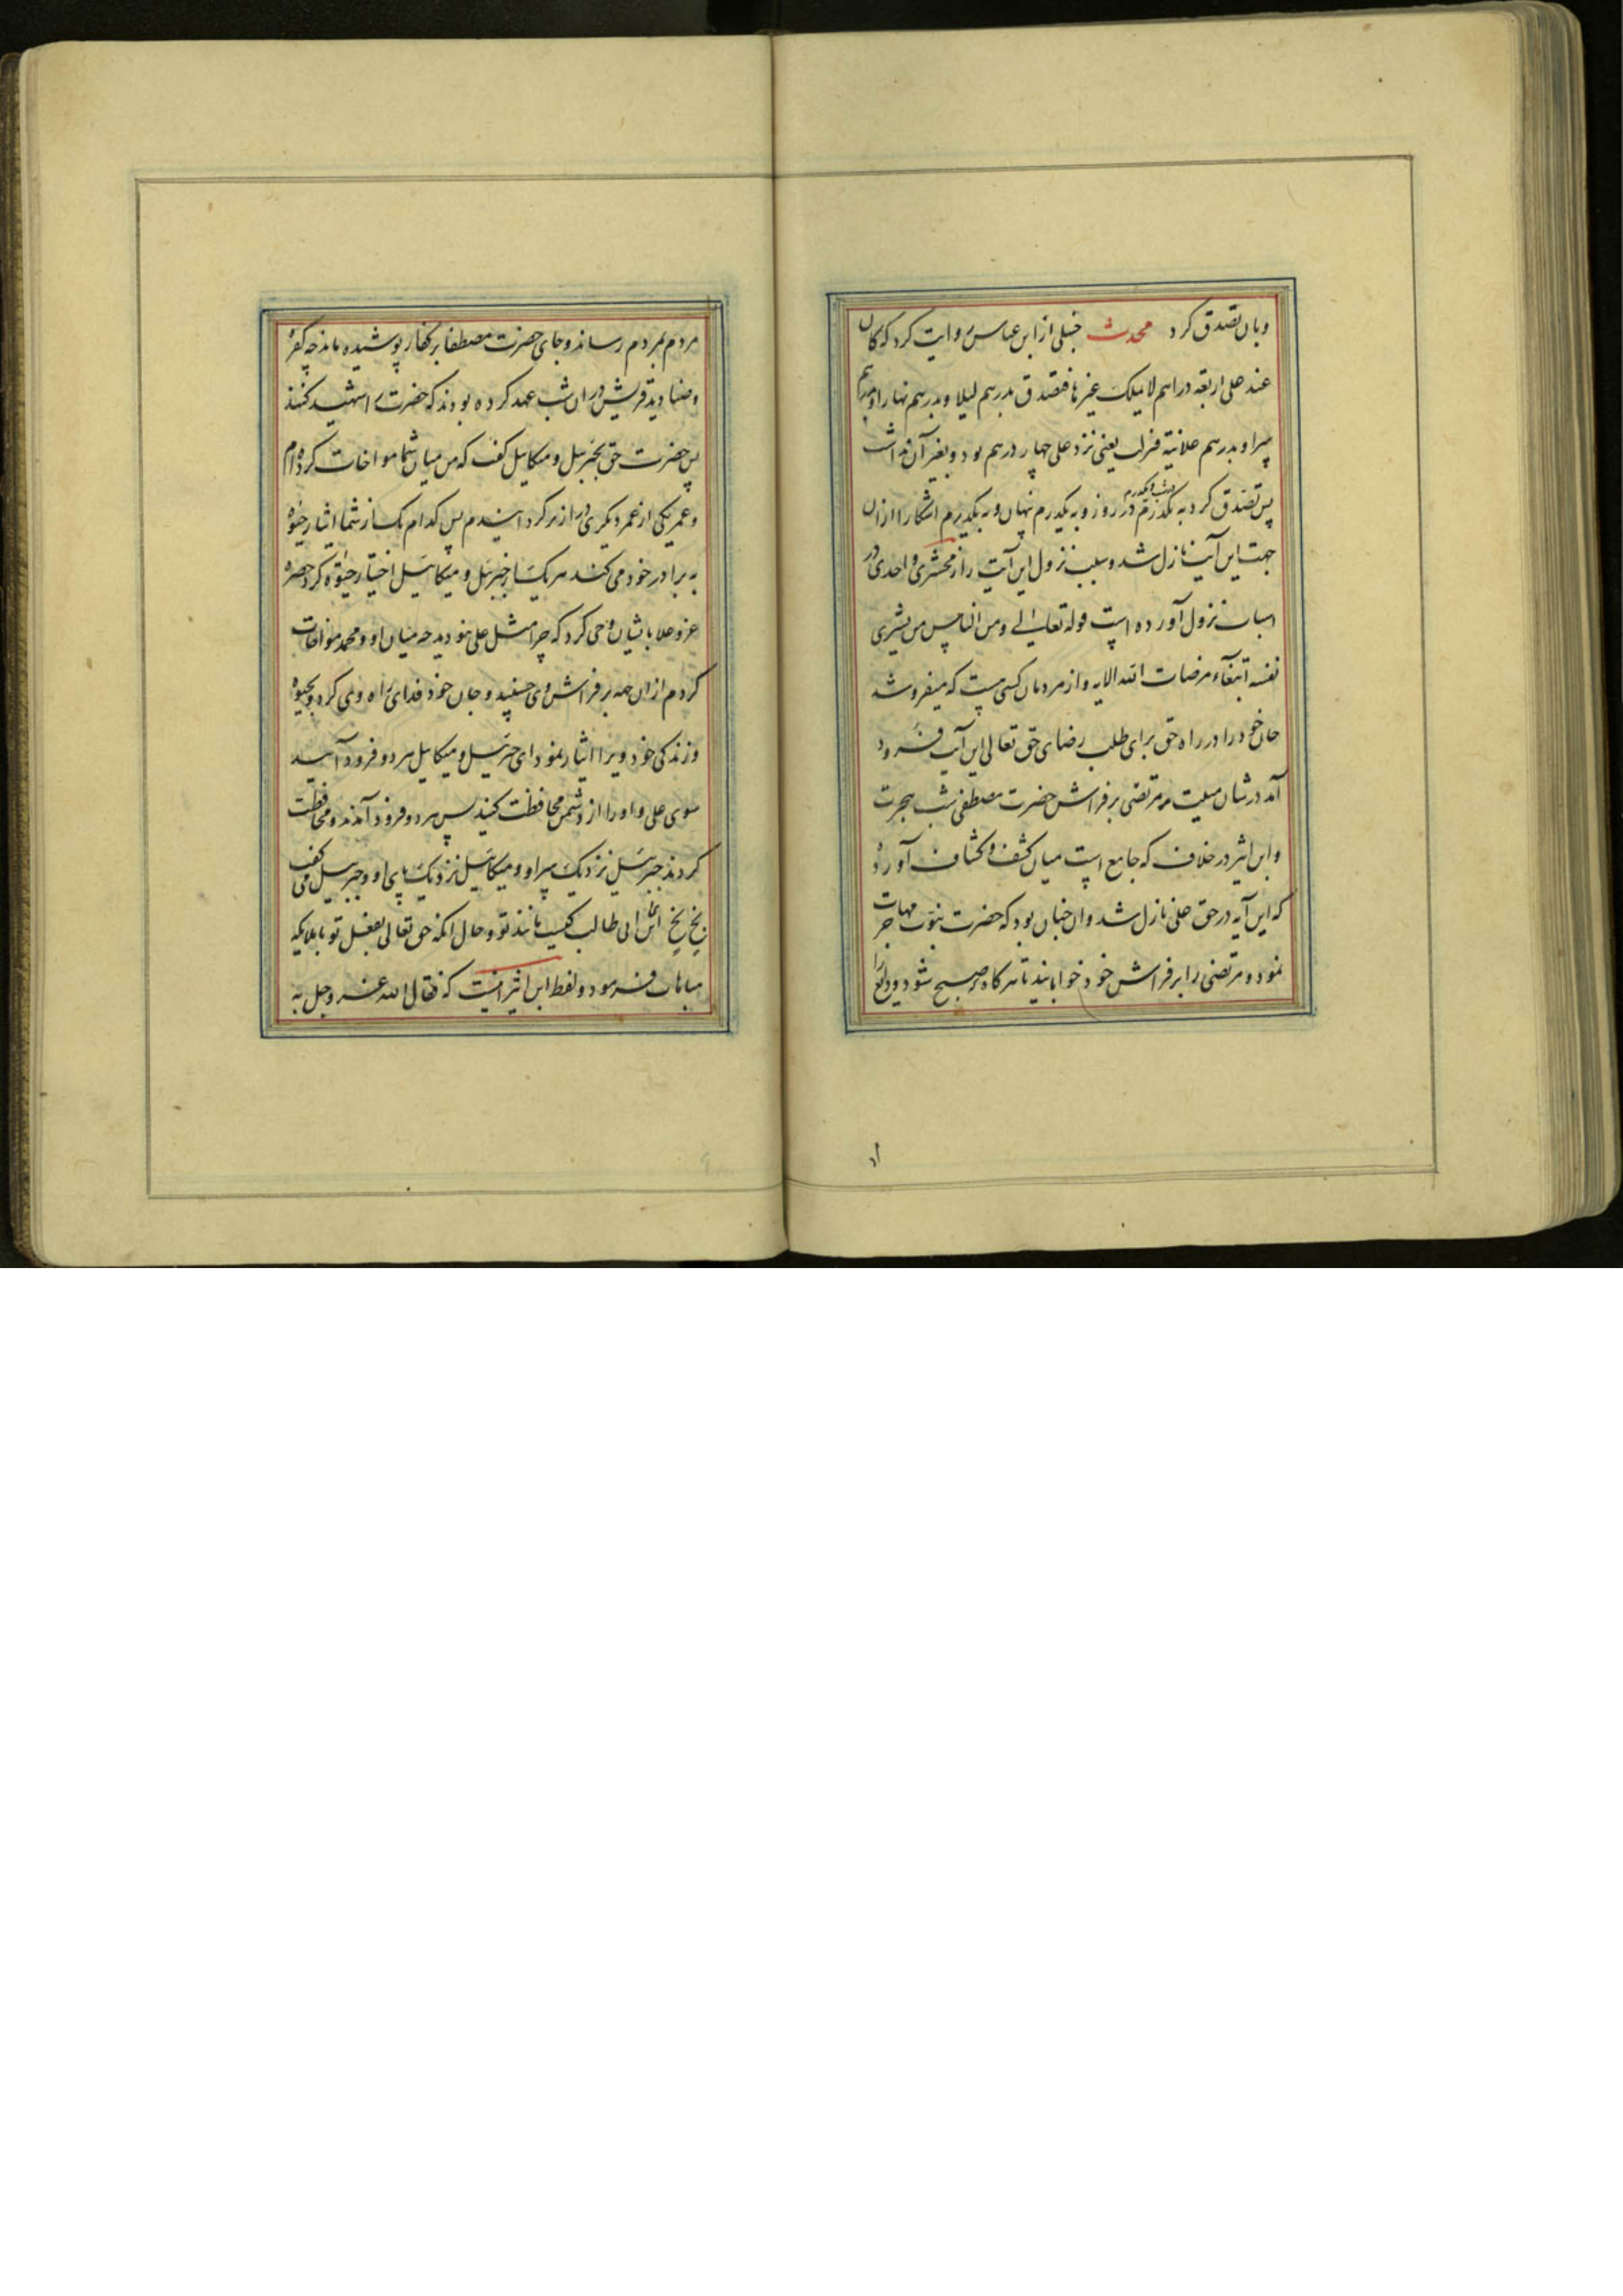 وبان تصدق کرد محدث حنبلی از ابن عباس روایت کرد که کان
عند علی اربعة دراهم لا یملک غیرها فتصدق بدرهم لیلا وبدرهم نهارا وبدرهم
سرا وبدرهم علانیة فنزلت یعنی نزد علی چهار درهم بود وبغیر آن نداشت
پس تصدق کرد به یکدرم در روز وبه یکدرم نهان وبه یکدرم آشکارا ازان
جهت این آیت نازل شد وسبب نزول این آیت را زمخشری و احدی در
اسباب نزول آورده است قوله تعالی ومن الناس من یشری
نفسه ابتغاء مرضات الله الایه واز مردمان کسی هست که میفروشد
جان خود را در راه حق برای طلب رضای حق تعالی این آیت فرود
آمد در شان مبیت مرتضی بر فراش حضرت مصطفی شب هجرت
وابن اثیر در خلاف که جامع است میان کشف و کشاف آورده
که این آیه در حق علی نازل شد وان چنان بود که حضرت نبوت مهاجرت
نمود و مرتضی را بر فراش خود خوابانید تا هرگاه صبح شود ودایع را
مردم بمردم رساند وجای حضرت مصطفا بر کفار پوشیده ماند چه کفره
وصنادید قریش دران شب عهد کرده بودند که حضرت را شهید کنند
پس حضرت حق بجبرئیل و میکائیل گفت که من میان شما مواخات کرده ام
وعمر یکی از عمر دیگری درازتر گردانیدم پس کدام یک از شما ایثار حیوة
به برادر خود می کنند هر یک از جبرئیل و میکائیل اختیار حیوة کرد حضرة
عز وعلا باایشان وحی کرد که چرا مثل علی نبودید چه میان او ومحمد مواخات
کردم ازان جهه بر فراش وی خسپید و جان خود فدای راه وی کرد وبحیوة
وزندکی خود ویرا ایثار نمود ای جبرئیل و میکائیل هر دو فرود آئید
سوی علی واو را از دشمن محافظت کنید پس هر دو فرود آمدند ومحافظت
کردند جبرئیل نزدیک سر او ومیکائیل نزدیک پای او وجبرئیل می گفت
بخ بخ ابن ابی طالب کیست مانند تو وحال انکه حق تعالی بفعل تو با ملایکه
مباهات فرمود ولفظ ابن اثیر اینست که فقال الله عز وجل به